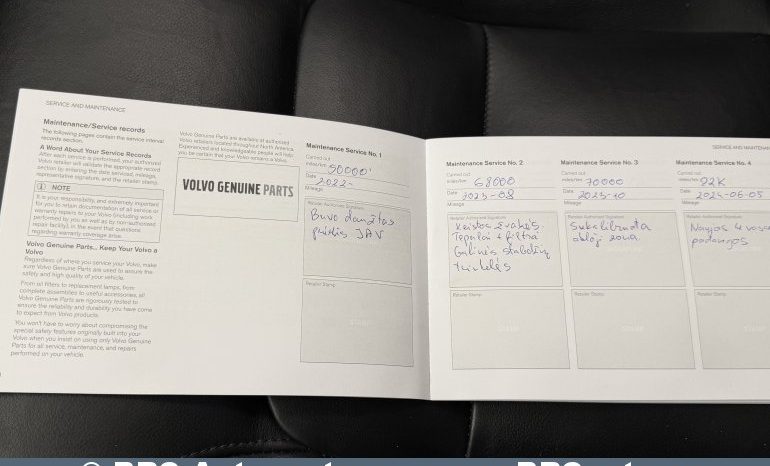 SERVICE AND MAINTENANCE
Maintenance/Service records
The following pages contain the service interval
records section.
A Word About Your Service Records
After each service is performed, your authorized
Volvo retailer will validate the appropriate record
section by entering the date serviced, mileage,
representative signature, and the retailer stamp.
NOTE
It is your responsibility, and extremely important
for you to retain documentation of all service or
warranty repairs to your Volvo (including work
performed by you as well as by non-authorized
repair facility), in the event that questions
regarding warranty coverage arise.
Volvo Genuine Parts... Keep Your Volvo a
Volvo
Regardless of where you service your Volvo, make
sure Volvo Genuine Parts are used to assure the
safety and high quality of your vehicle.
From oil filters to replacement lamps, from
complete assemblies to useful accessories, all
Volvo Genuine Parts are rigorously tested to
ensure the reliability and durability you have come
to expect from Volvo products.
You won't have to worry about compromising the
special safety features originally built into your
Volvo when you insist on using only Volvo Genuine
Parts for all service, maintenance, and repairs
performed on your vehicle.
Volvo Genuine Parts are available at authorized
Volvo retailers located throughout North America.
Experienced and knowledgeable people will help
you be certain that your Volvo remains a Volvo.
VOLVO GENUINE PARTS
Maintenance Service No. 1
Carried out
miles/km 50000
Date 2022-
Mileage
Retailer Authorized Signature
Buvo daužtas
JAV
Retailer Stamp
STAMP
Maintenance Service No. 2
Carried out
miles/km 68000
Date 2023-08
Mileage
Retailer Authorized Signature
Tepalai + filtrai
Galinės
Retailer Stamp
STAMP
Maintenance Service No. 3
Carried out
miles/km 70000
Date 2023-10
Mileage
Retailer Authorized Signature
Retailer Stamp
STAMP
SERVICE AND MAINTENAN
Maintenance Service No. 4
Carried out
miles/km 92K
Date 2024-06-05
Mileage
Retailer Authorized Signature
Naujos 4 vasar
padangos
Retailer Stamp